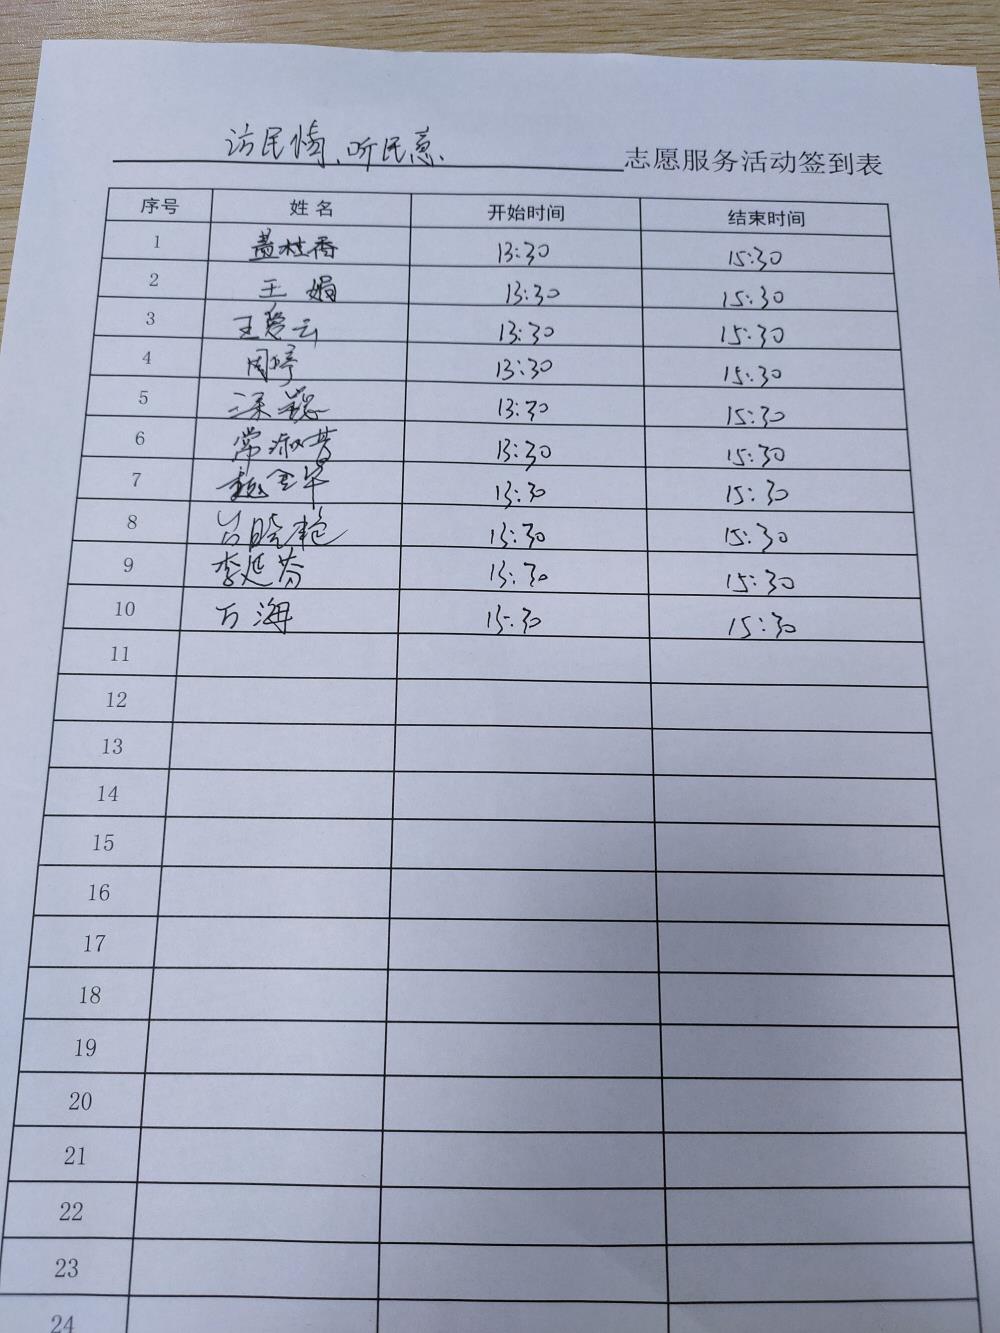 访民情、听民意 志愿服务活动签到表
序号 姓名 开始时间 结束时间
1 黄桂香 13:30 15:30
2 王娟 13:30 15:30
3 王爱云 13:30 15:30
4 周婷 13:30 15:30
5 13:30 15:30
6 常淑芳 13:30 15:30
7 魏金华 13:30 15:30
8 吕晓艳 13:30 15:30
9 李延芬 13:30 15:30
10 万海 15:30 15:30
11
12
13
14
15
16
17
18
19
20
21
22
23
24